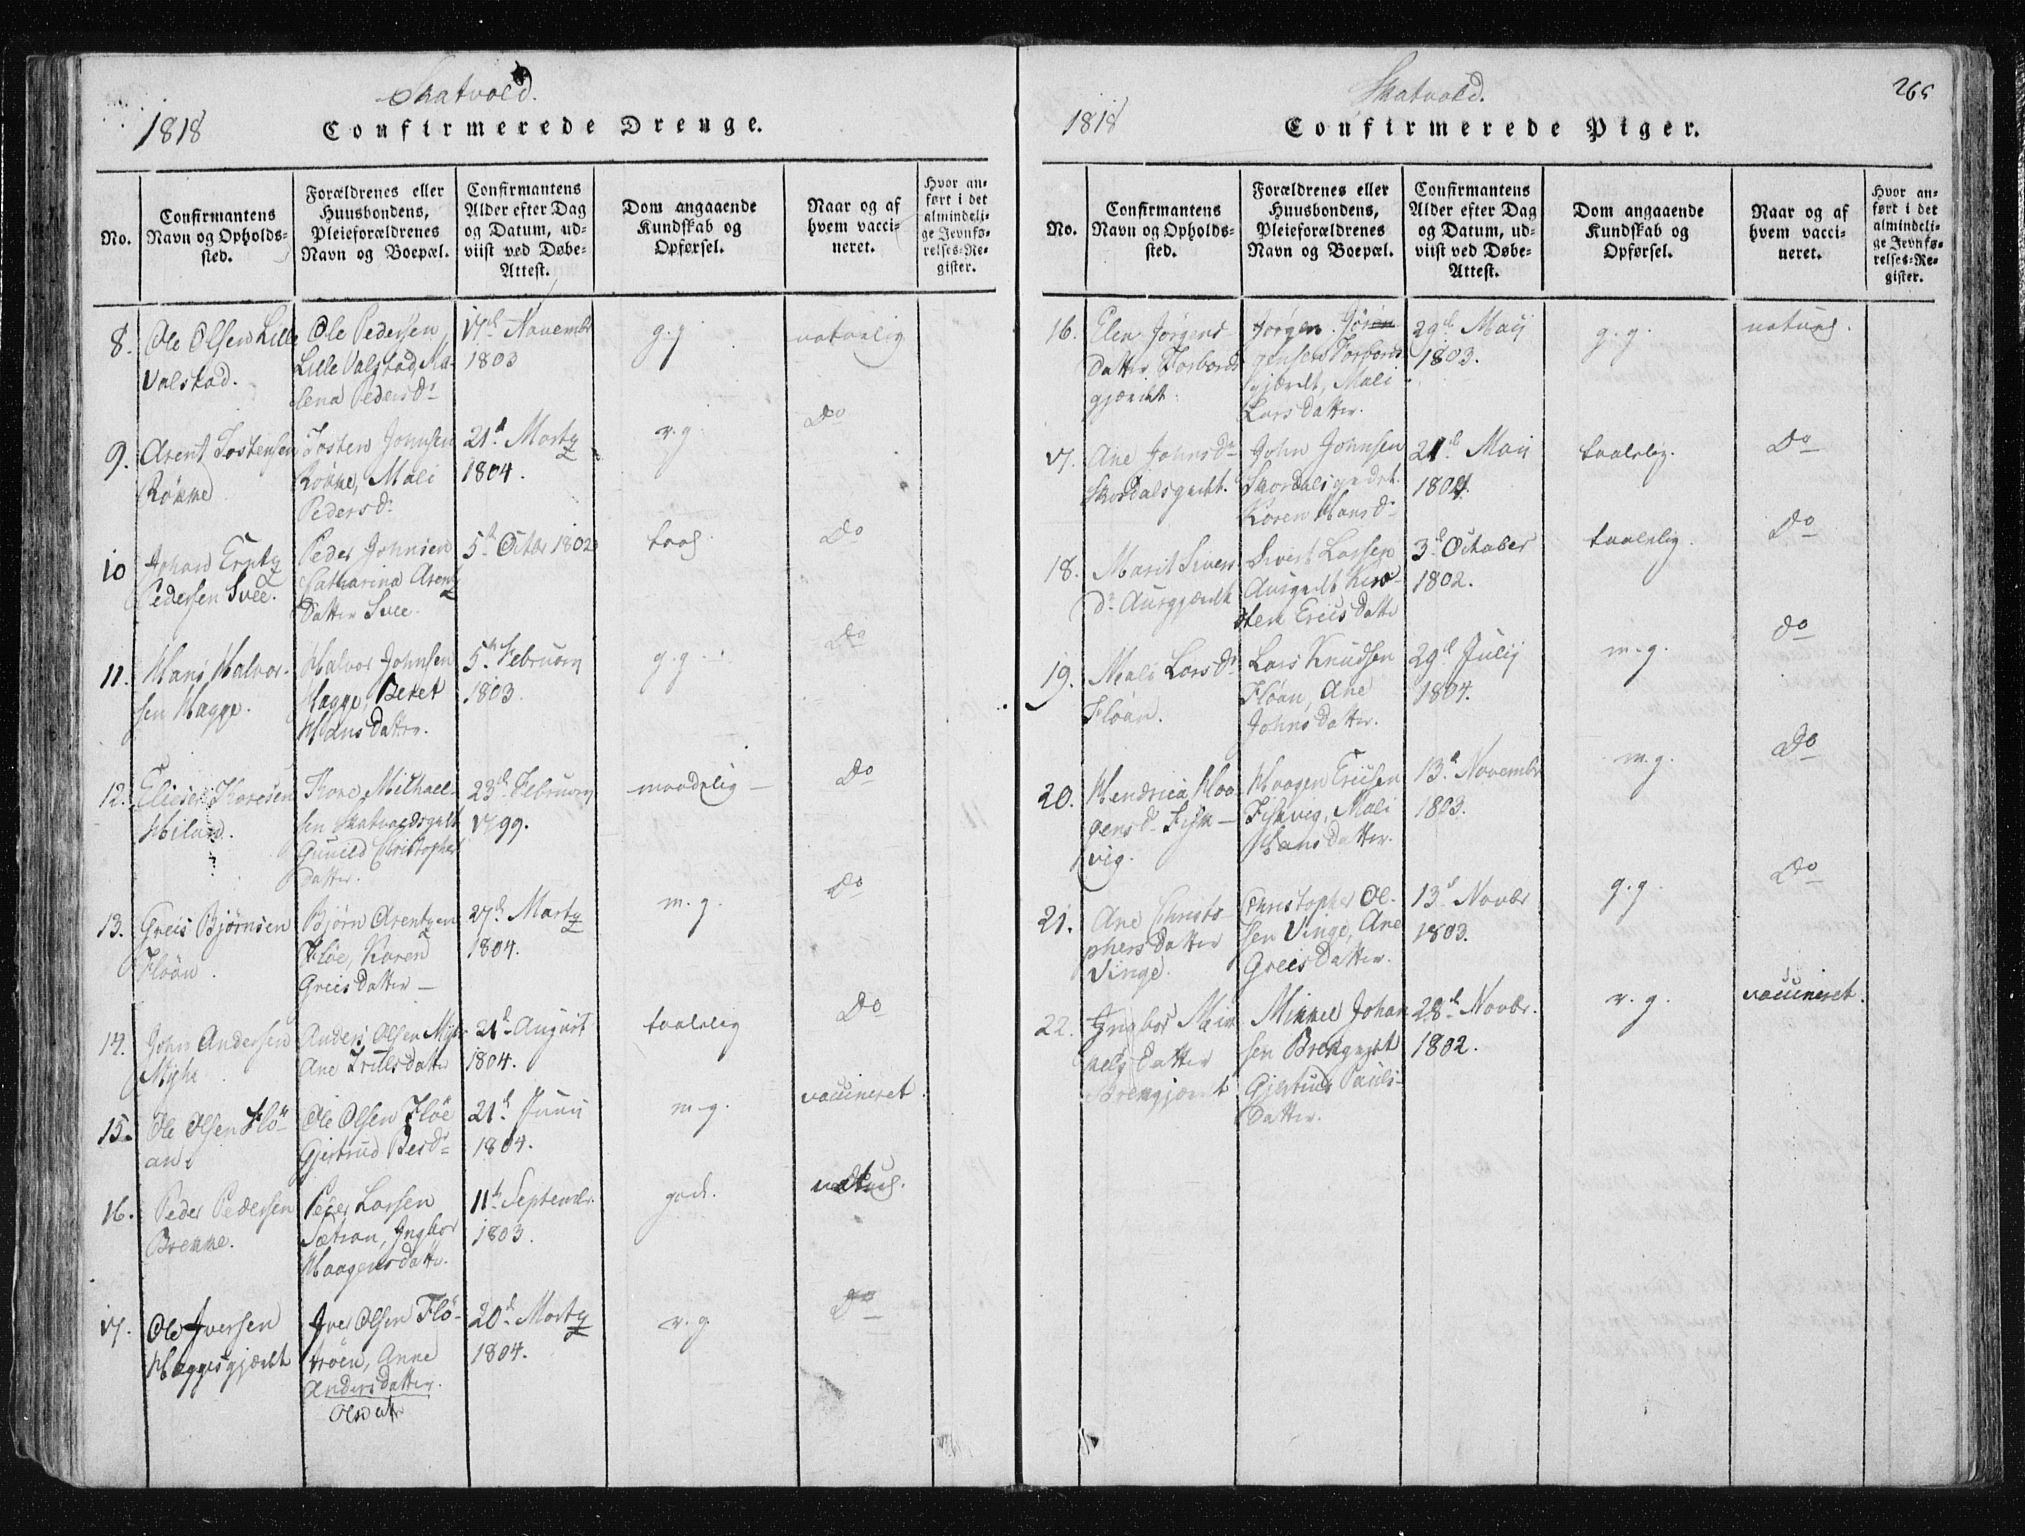 Skatvold.
1818
Confirmerede Drenge.
No.
Confirmantens
Navn og Opholds-
sted.
Forældrenes eller
Huusbondens,
Pleieforældrenes
Navn og Boepæl.
Confirmantens
Alder efter Dag
og Datum, ud-
viist ved Døbe-
Attest.
Dom angaaende
Kundskab og
Opførsel.
Naar og af
hvem vacci-
neret.
Hvor an-
ført i det
almindeli-
ge Jevnfø-
relses-Re-
gister.
8.
Ole Olsen Lille
Valstad.
Ole Pedersen
Lille Valstad, Ma-
lena Pedersdr
17de Novembr
1803
g. g
naturlig
9.
Arent Tostensen
Røkke
Tosten Johnsen
Røkke, Mali
Pedersdr
21de Marty
1804.
v. g.
Do
10
Johan Erntz
Pedersen Svee.
Peder Johnsen
Catharina Arentz
Datter Svee.
5te Octbr 1802
taal.
Do
11.
Hans Halvor-
sen Hagge.
Halvor Johnsen
Hagge, Beret
Hans Datter.
5te February
1803.
g. g.
Do
12.
Elieser Thoresen
Hiland.
Thore Michael-
sen Skatvaldsgaldt
Gunild Christopher
datter.
23de February
1799.
maadelig
Do
13.
Greis Bjørnsen
Floan.
Bjørn Arentzen
Floe, Karen
Greis Datter
27de Marty
1804.
m. g.
Do
14.
John Andersen
Myhr
Anders Olsen Myhr
Ane Trulsdatter
21de August
1804.
taalelig
Do
15.
Ole Olsen Flö-
an.
Ole Olsen Floe
Gjertrud Besdr
21de Juny
1804.
m-g.
vaccineret.
16.
Peder Pedersen
Brekke.
Peder Larsen
Sætran, Ingbor
Haagensdattr.
11te Septembr.
1803.
godt.
naturl.
17.
Ole Iversen
Haggesgjærdt
Iver Olsen Flö-
trøen, Anne
Andersdatter.
Olsdattr
20de Marty
1804.
v. g.
Do
Skatvold.
265
1818
Confirmerede Piger.
No.
Confirmantens
Navn og Opholds-
sted.
Forældrenes eller
Huusbondens,
Pleieforældrenes
Navn og Boepæl.
Confirmantens
Alder efter Dag
og Datum, ud-
viist ved Døbe-
Attest.
Dom angaaende
Kundskab og
Opførsel.
Naar og af
hvem vacci-
neret.
Hvor an-
ført i det
almindeli-
ge Jevnfø-
relses-Re-
gister.
16.
Elen Jörgens
Datter Forbords
gjærdt.
Jörgen Jören
gensen Forbords
gjærdt, Mali
Lars Datter.
29de Maij
1803.
g. g.
naturl.
17.
Ane Johnsdr
Skordalsgierdt.
John Johnsen
Skordalsgerdt.
Karen Hansdr
21de Maij
1804.
taalelig.
Do
18.
Marit Sivers
Dr Ausgjærdt
Sivert Larsen
Ausgerdt Kir-
sten Eriis Datte
3de October
1802.
taalelig.
Do
19.
Mali Larsdr
Floan.
Lars Knudsen
Floan, Ane
Johns Datter.
29de Julij
1804.
m-g.
do
20.
Hendrica Haa-
gensd- Fisk-
vig.
Haagen Eriksen
Fiskvig, Mali
Hans Datter.
13de Novembr
1803.
m. g.
Do
21.
Ane Christo-
phers Datter
Vinge.
Christopher Ol-
sen Vinge, Ane
Greis Datter.
13de Novbr
1803.
g. g.
Do
22.
Ingbor Mik-
kels Datter
Brekgjærdt
Mikkel Johan
sen Brekgerdt
Gjertrud Pauls-
Datter.
28de Novbr.
1802.
v. g.
vaccineret.